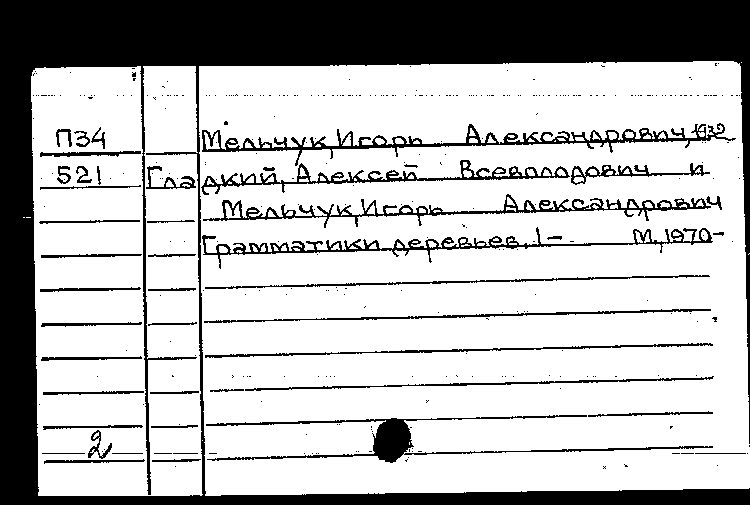 П34 Мельчук, Игорь Александрович, 1932
521 Гладкий, Алексей Всеволодович и
Мельчук, Игорь Александрович
Грамматики деревьев, 1— М., 1970—
2